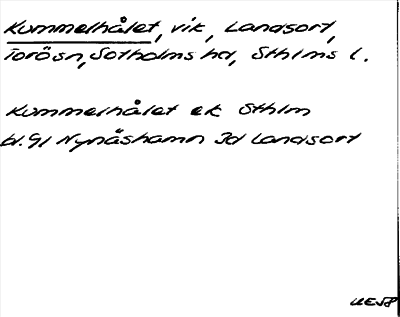 Kummelhålet, vik, Landsort,
Torösn, Sotholms hd, Sthlms l.
Kummelhålet ek Sthlm
bl. 91 Nynäshamn 3d Landsort